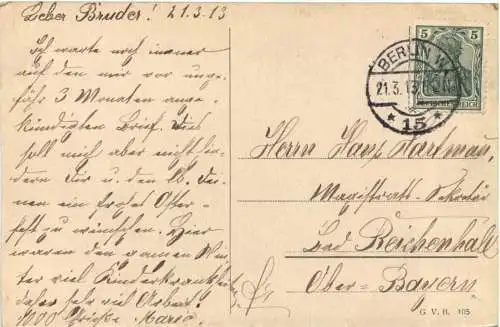 Lieber Bruder! 21.3.13
Ich warte noch immer
auf den mir vor unge-
fähr 3 Monaten ange-
kündigten Brief. Dies
soll mich aber nicht hin-
dern Dir u. den lb. Dei-
nen ein frohes Oster-
fest zu wünschen. Hier
waren den ganzen Win-
ter viel Kinderkrankheiten
daher sehr viel Arbeit.
1000 Grüße Marie
5 5
BERLIN W.
21.3.13.
* 15 *
Herrn Hans Hartman,
Magistrats-Sekretär
Bad Reichenhall
Ober-Bayern
G. V. B. 105